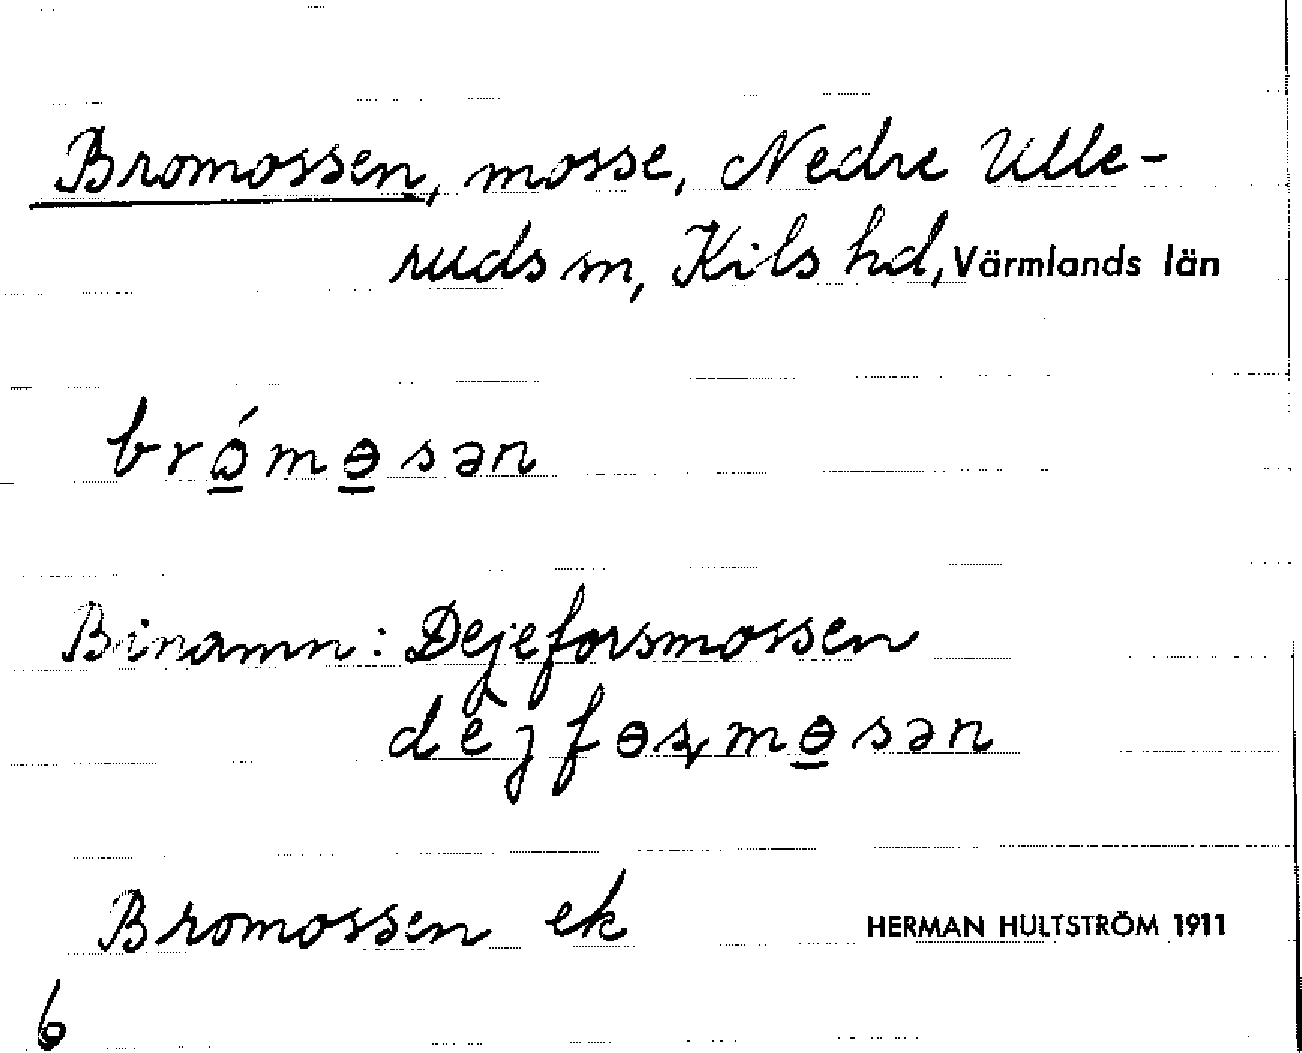 Bromossen, mosse, Nedre Ulle-
ruds sn, Kils hd, Värmlands län
brɔ̲́mɵ̲sən
Binamn: Dejeforsmossen
dejfɵʂmɵ̲sən
Bromossen ek HERMAN HULTSTRÖM 1911
6